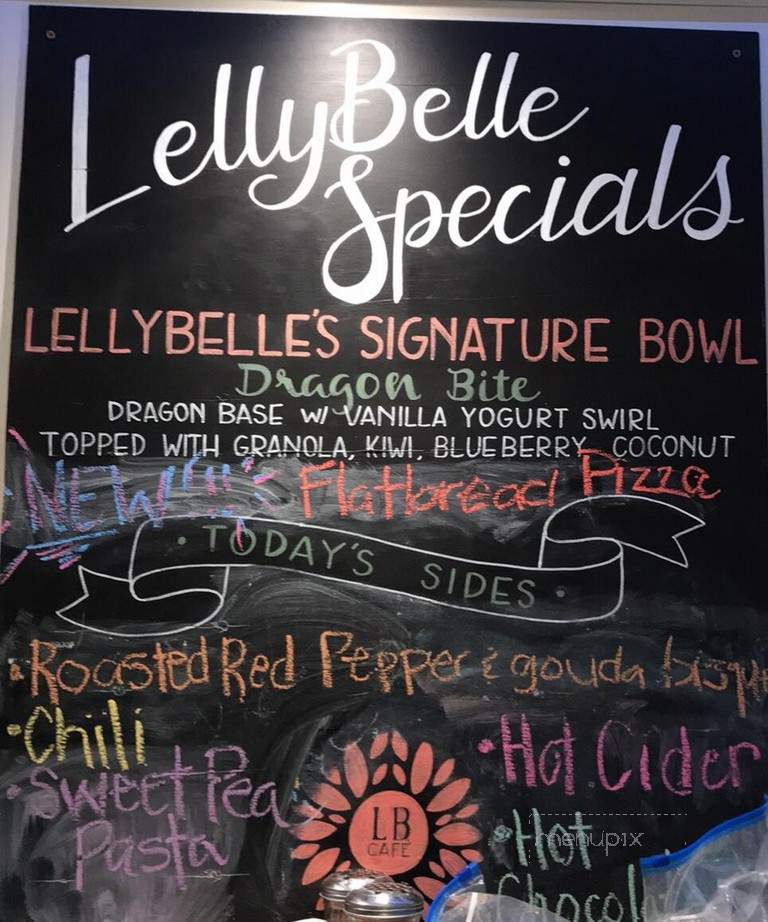 LellyBelle
Specials
LELLYBELLE'S SIGNATURE BOWL
Dragon Bite
DRAGON BASE W/ VANILLA YOGURT SWIRL
TOPPED WITH GRANOLA, KIWI, BLUEBERRY, COCONUT
NEW!!! Flatbread Pizza
• TODAY'S SIDES •
• Roasted Red Pepper & gouda bisque
• Chili
• Sweet Pea
Pasta
• Hot Cider
• Hot
Chocol
LB
CAFÉ
menupix